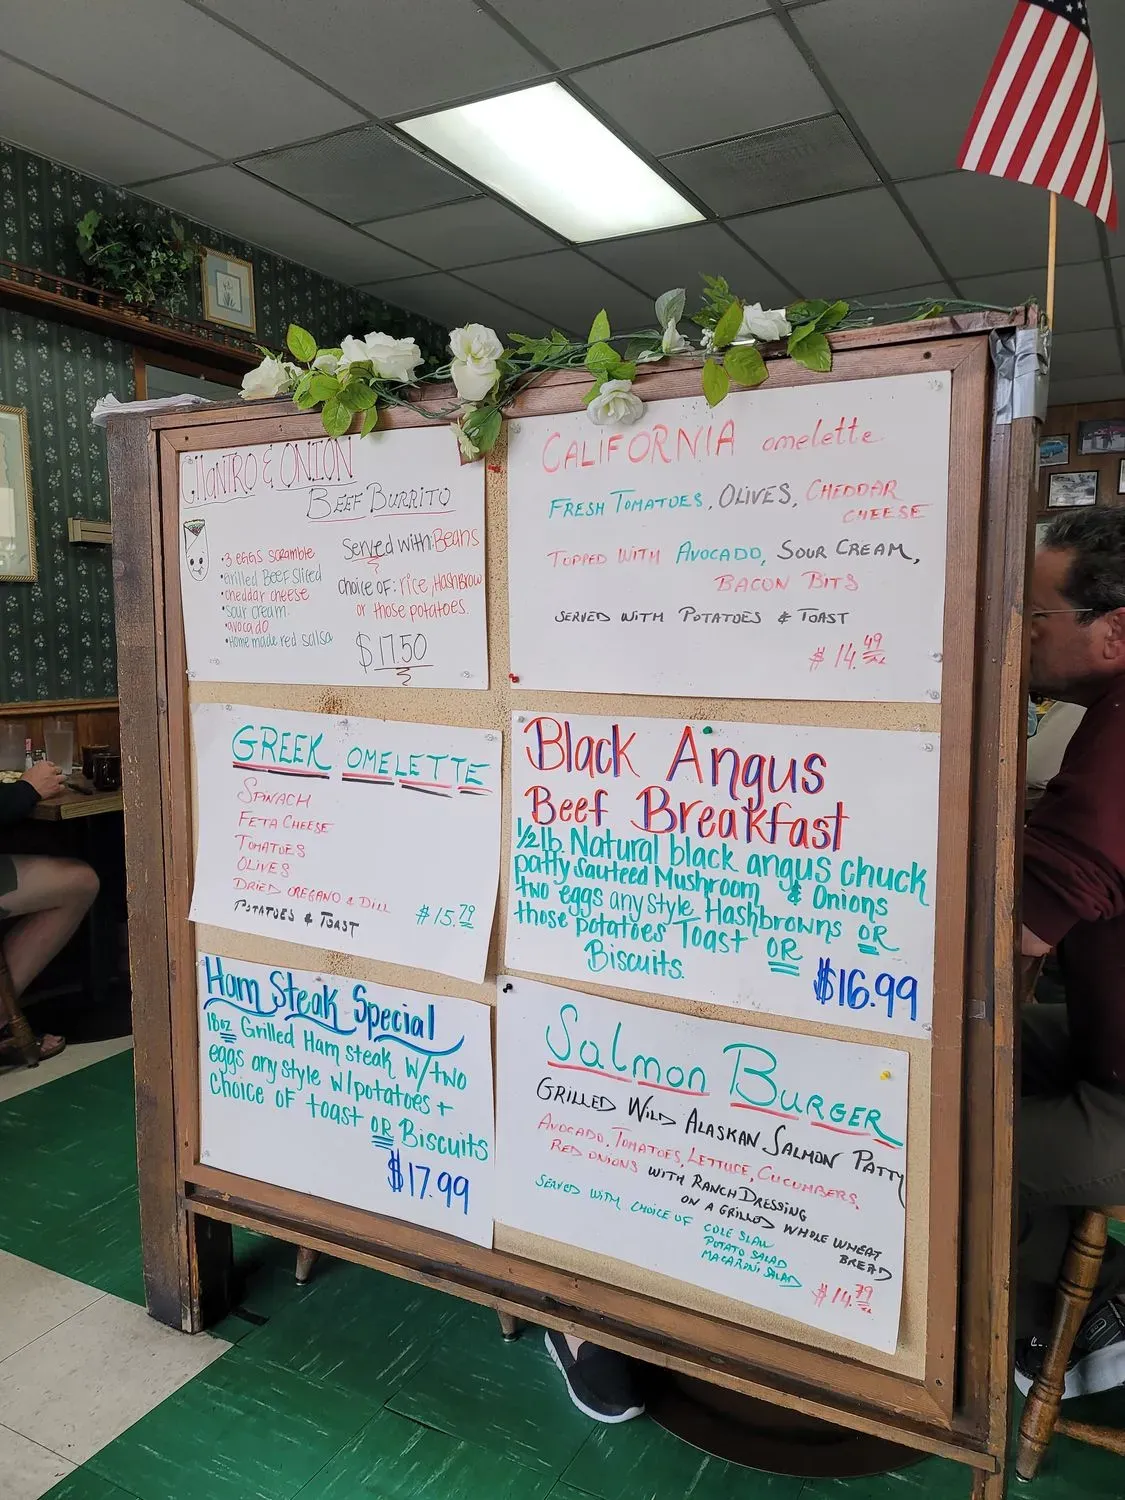 CILANTRO & ONION
BEEF BURRITO
• 3 EGGS SCRAMBLE
• Grilled BEEF Sliced
• cheddar cheese
• sour cream.
• avocado
• Homemade red salsa
Served with: Beans
&
choice of: rice, Hashbrow
or those potatoes.
$17.50
CALIFORNIA omelette
FRESH TOMATOES, OLIVES, CHEDDAR
CHEESE
TOPPED WITH AVOCADO, SOUR CREAM,
BACON BITS
SERVED WITH POTATOES & TOAST
$14.49
GREEK OMELETTE
SPINACH
FETA CHEESE
TOMATOES
OLIVES
DRIED OREGANO & DILL
POTATOES & TOAST
$15.79
Black Angus
Beef Breakfast
1/2 lb Natural black angus chuck
patty sauteed Mushroom & Onions
two eggs any style, Hashbrowns OR
those potatoes Toast OR
Biscuits.
$16.99
Ham Steak Special
18oz Grilled Ham steak w/two
eggs any style w/potatoes +
choice OF toast OR Biscuits
$17.99
Salmon BURGER
GRILLED WILD ALASKAN SALMON PATTY
AVOCADO, TOMATOES, LETTUCE, CUCUMBERS,
RED ONIONS WITH RANCH DRESSING
ON A GRILLED WHOLE WHEAT
BREAD
SERVED WITH CHOICE OF COLE SLAW
POTATO SALAD
MACARONI SALAD
$14.79